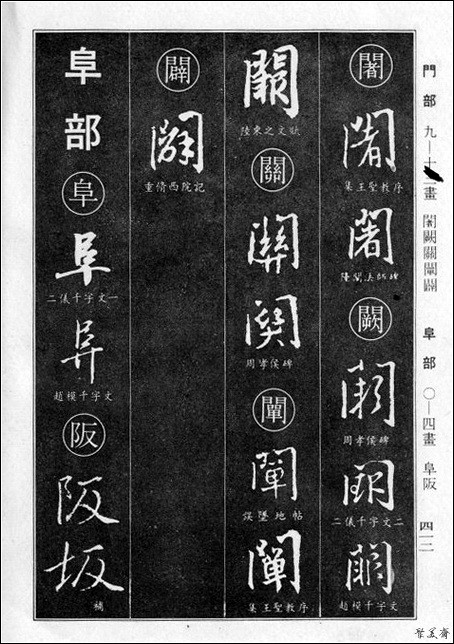 門部
闍闕關闡闢
阜部
〇—四畫
阜阪
闍
闍
集王聖教序
闍
隆闡法師碑
闕
闕
周孝侯碑
闕
二儀千字文二
闕
趙模千字文
闕
陸柬之文賦
關
關
關
周孝侯碑
闡
闡
墜地帖
闡
集王聖教序
闢
闢
重脩西院記
阜部
阜
阜
二儀千字文一
阜
趙模千字文
阪
阪
坂
補